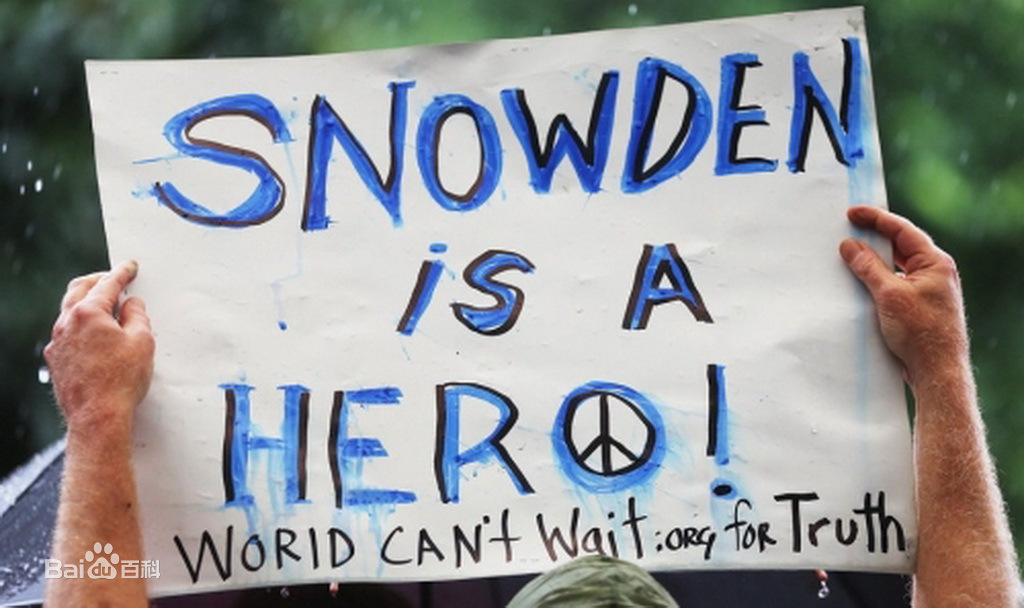 SNOWDEN
is A
HERO!
WORlD CAN't Wait:ORG for Truth
Bai百科